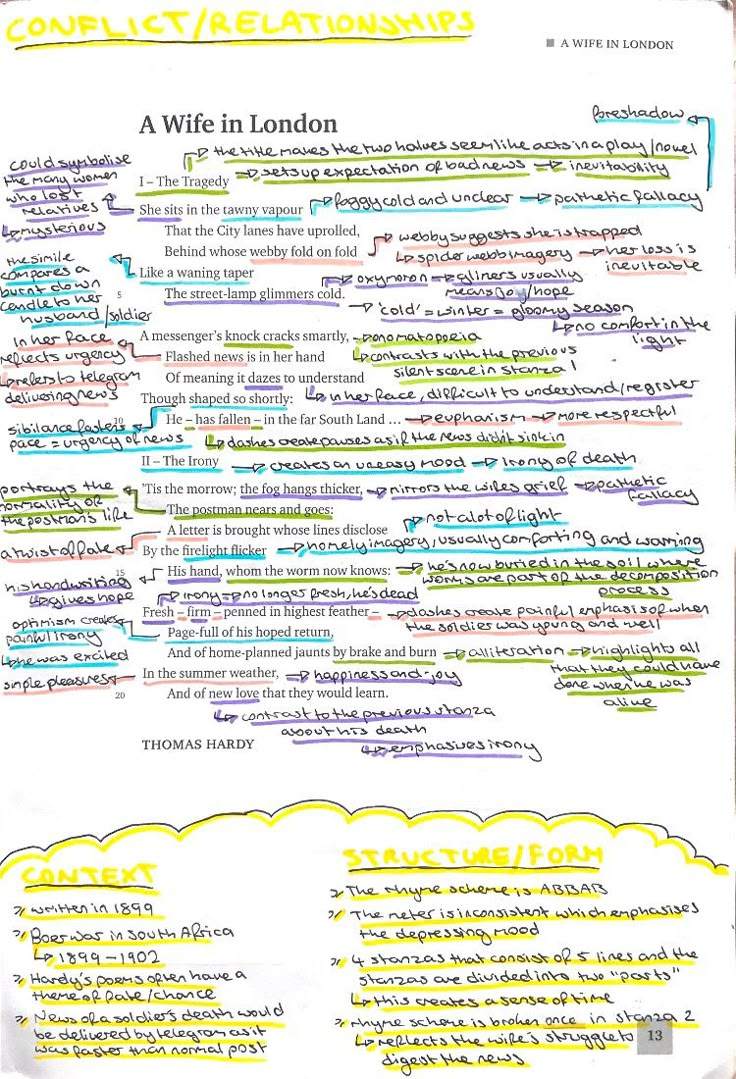 CONFLICT/RELATIONSHIPS
■ A WIFE IN LONDON
foreshadow
A Wife in London
the title makes the two halves seem like acts in a play/novel
I – The Tragedy
sets up expectation of bad news → inevitability
could symbolise
the many women
who lost
relatives
↳ mysterious
She sits in the tawny vapour
foggy cold and unclear → pathetic fallacy
That the City lanes have uprolled,
Behind whose webby fold on fold
webby suggests she is trapped
↳ spider web imagery → her loss is
inevitable
the simile
compares a
burnt down
candle to her
husband/soldier
Like a waning taper
5
The street-lamp glimmers cold.
oxymoron → glimers usually
means joy/hope
'cold' = winter = gloomy season
↳ no comfort in the
light
A messenger's knock cracks smartly,
→ onomatopoeia
↳ contrasts with the previous
silent scene in stanza 1
in her face
reflects urgency
↳ refers to telegram
delivering news
Flashed news is in her hand
Of meaning it dazes to understand
↳ in her face, difficult to understand/register
Though shaped so shortly:
sibilance fastens
pace = urgency of news
10
He – has fallen – in the far South Land ...
→ euphamism → more respectful
↳ dashes create pauses as if the news didn't sink in
II – The Irony
→ creates an uneasy mood → irony of death
'Tis the morrow; the fog hangs thicker,
→ mirrors the wife's grief → pathetic
fallacy
portrays the
normality of
the postman's life
The postman nears and goes:
a twist of fate
A letter is brought whose lines disclose
→ not a lot of light
By the firelight flicker
→ homely imagery, usually comforting and warming
15
his handwriting
↳ gives hope
His hand, whom the worm now knows:
→ he's now buried in the soil where
worms are part of the decomposition
process
irony → no longer fresh, he's dead
Fresh – firm – penned in highest feather –
→ dashes create painful emphasis of when
the soldier was young and well
optimism creates
painful irony
↳ he was excited
Page-full of his hoped return,
And of home-planned jaunts by brake and burn
→ alliteration → highlights all
that they could have
done when he was
alive
simple pleasures
In the summer weather,
→ happiness and joy
20
And of new love that they would learn.
↳ contrast to the previous stanza
about his death
↳ emphasises irony
THOMAS HARDY
CONTEXT
written in 1899
Boer war in South Africa
↳ 1899 – 1902
Hardy's poems often have a
theme of fate/chance
News of a soldier's death would
be delivered by telegram as it
was faster than normal post
STRUCTURE/FORM
The rhyme scheme is ABBAB
The meter is inconsistent which emphasises
the depressing mood
4 stanzas that consist of 5 lines and the
stanzas are divided into two "parts"
↳ this creates a sense of time
rhyme scheme is broken once in stanza 2
↳ reflects the wife's struggle to
digest the news
13